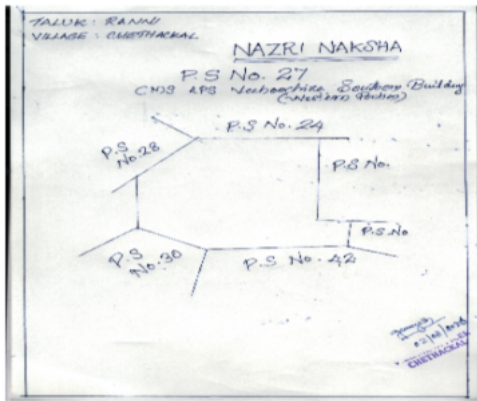 TALUK : RANNI
VILLAGE : CHETHACKAL
NAZRI NAKSHA
P.S No. 27
CMS LPS Southern Building
(Western Portion)
P.S No. 24
P.S
No. 28
P.S No.
P.S No
P.S
No. 30
P.S No. 42
CHETHACKAL